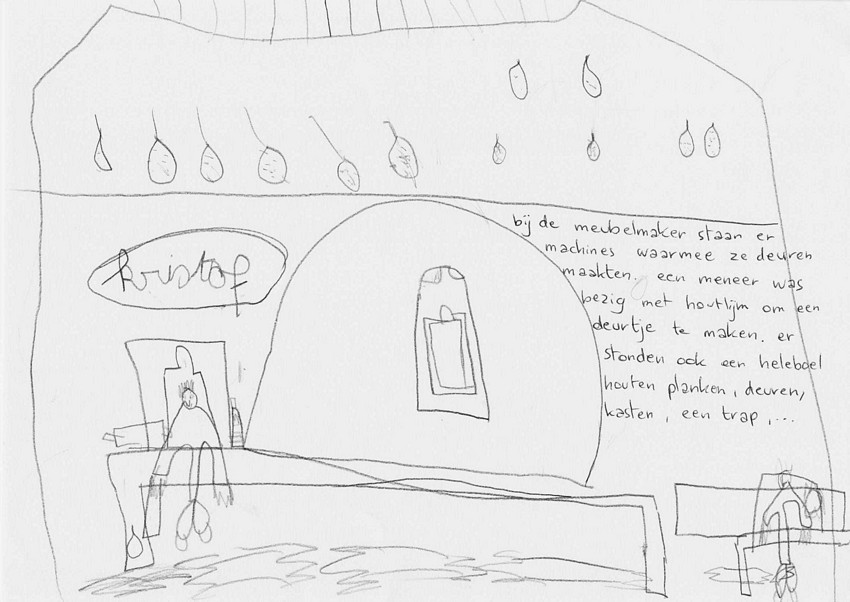 kristof
bij de meubelmaker staan er
machines waarmee ze deuren
maakten. een meneer was
bezig met houtlijm om een
deurtje te maken. er
stonden ook een heleboel
houten planken, deuren,
kasten, een trap,...